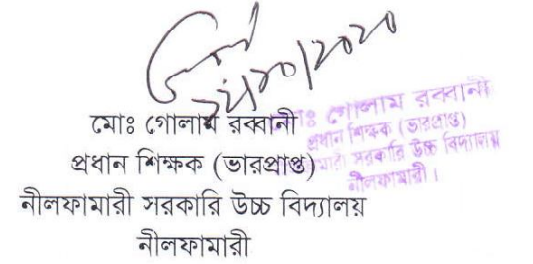 মোঃ গোলাম রব্বানী
প্রধান শিক্ষক (ভারপ্রাপ্ত)
নীলফামারী সরকারি উচ্চ বিদ্যালয়
নীলফামারী
গোলাম রব্বানী
প্রধান শিক্ষক (ভারপ্রাপ্ত)
সরকারি উচ্চ বিদ্যালয়
নীলফামারী।